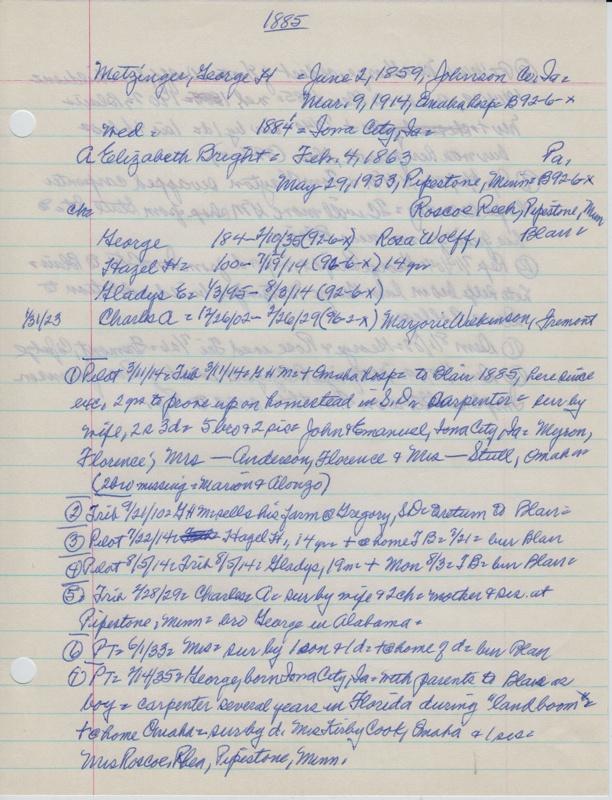 1885
Metzinger, George H = June 2, 1859, Johnson Co. Ia =
Mar. 9, 1914, Omaha hosp = B92-6-x
med = 1884 = Iowa City, Ia =
A Elizabeth Bright = Feb. 4, 1863 Pa,
May 29, 1933, Pipestone, Minn = B92-6-x
ch = Roscoe Reeh, Pipestone, Minn
George 184 - 2/10/35 (92-6-x) Rosa Wolff, Blair =
Hazel H = 100 - 7/19/14 (96-6-x) 14 yr
Gladys E = 1/3/95 - 8/3/14 (92-6-x)
1/31/23 Charles A = 12/26/02 - 2/26/29 (96-2-x) Marjorie Wilkinson, Fremont
① Pilot 3/11/14 = Trib 3/11/14 = G H M = + Omaha hosp = to Blair 1885, here since
exc. 2 yrs to prove up on homestead in S.D. = carpenter = sur by
wife, 2 s 3 d = 5 bro & 2 sis = John & Emanuel, Iowa City, Ia = Myron,
Florence, Mrs — Anderson, Florence & Mrs — Stull, Omaha =
(2 bro missing = Marion & Alonzo)
② Trib 9/21/10 = G H M sells his farm @ Gregory, S.D. = return to Blair =
③ Pilot 7/22/14 = Hazel H., 14 yr = + @ home TB = 7/21 = bur Blair
④ Pilot 8/5/14 = Trib 8/5/14 = Gladys, 19 yr = + Mon 8/3 = TB = bur Blair =
⑤ Trib 2/28/29 = Charles A = sur by wife & 2 ch = mother & sis. at
Pipestone, Minn = bro George in Alabama =
⑥ PT = 6/1/33 = Mrs = sur by 1 son & 1 d = + @ home of d = bur Blair
⑦ PT = 2/14/35 = George, born Iowa City, Ia = with parents to Blair as
boy = carpenter several years in Florida during "land boom" =
+ @ home Omaha = sur by d. Mrs Kirby Cook, Omaha & 1 sis =
Mrs Roscoe Rhea, Pipestone, Minn.